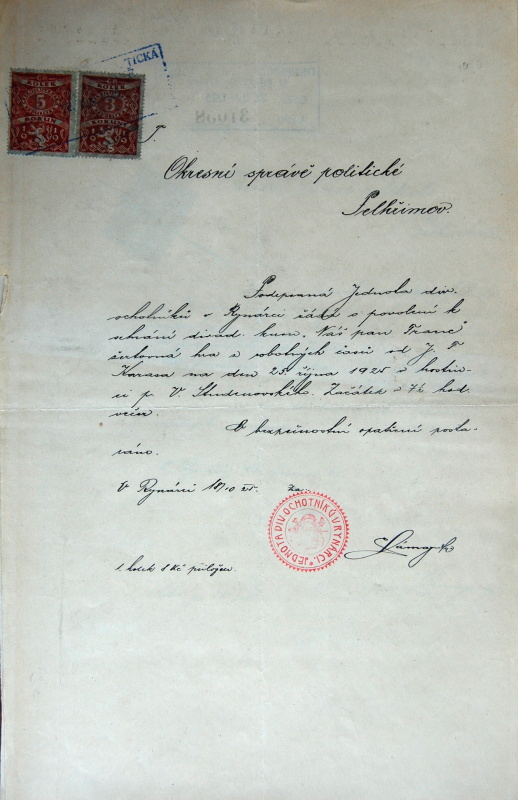 TICKÁ
KOLEK
5
KORUN
KOLEK
3
KORUN
31098
T.
Okresní správě politické
Pelhřimov.
Podepsaná Jednota div.
ochotníků v Rynárci žádá o povolení k
sehrání divad. kusu. Náš pan Franc
žertovná hra z robotných časů od J. F.
Karasa na den 25. října 1925 v hostin-
ci p. V. Studenovského. Začátek o 7½ hod
večer.
O bezpečnostní opatření posta-
ráno.
V Rynárci 18/10 25. Za:
JEDNOTA DIV. OCHOTNÍKŮ V RYNÁRCI.
1 kolek 8 Kč přiložen.